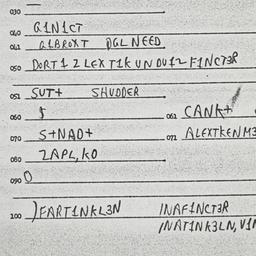 030
040 G1N1CT
041 G1BROXT DGLNEED
050 DORT1 2 LEXT1K UN DU12 F1NCT3R
051 SUT+ SHUDDER
060 5 061 CANK+
070 S+NAD+ 071 ALEXTKENM3
080 2APL, KO
090 0
100 )FART1NKL3N INAF1NCT3R
INAT1NK3LN, V1